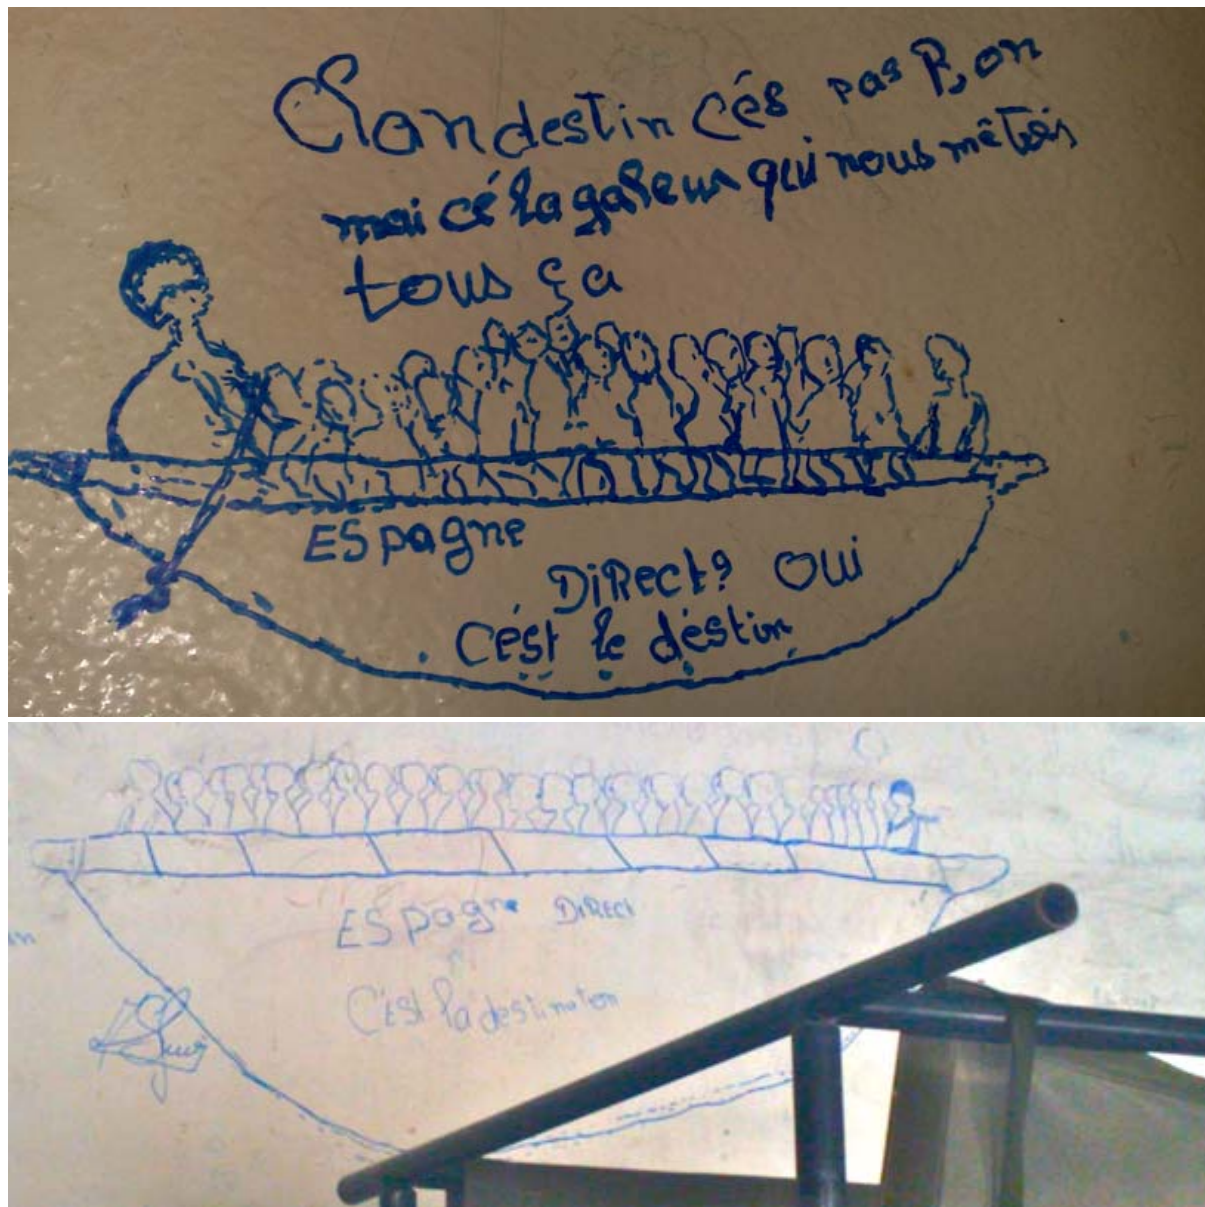 Clandestin cés pas Bon
mai cé la galeur qui nous mêtois
tous ça
ESpagne
DiRect? oui
C'ést le déstin
ESpagne DiRect
C'est la destination